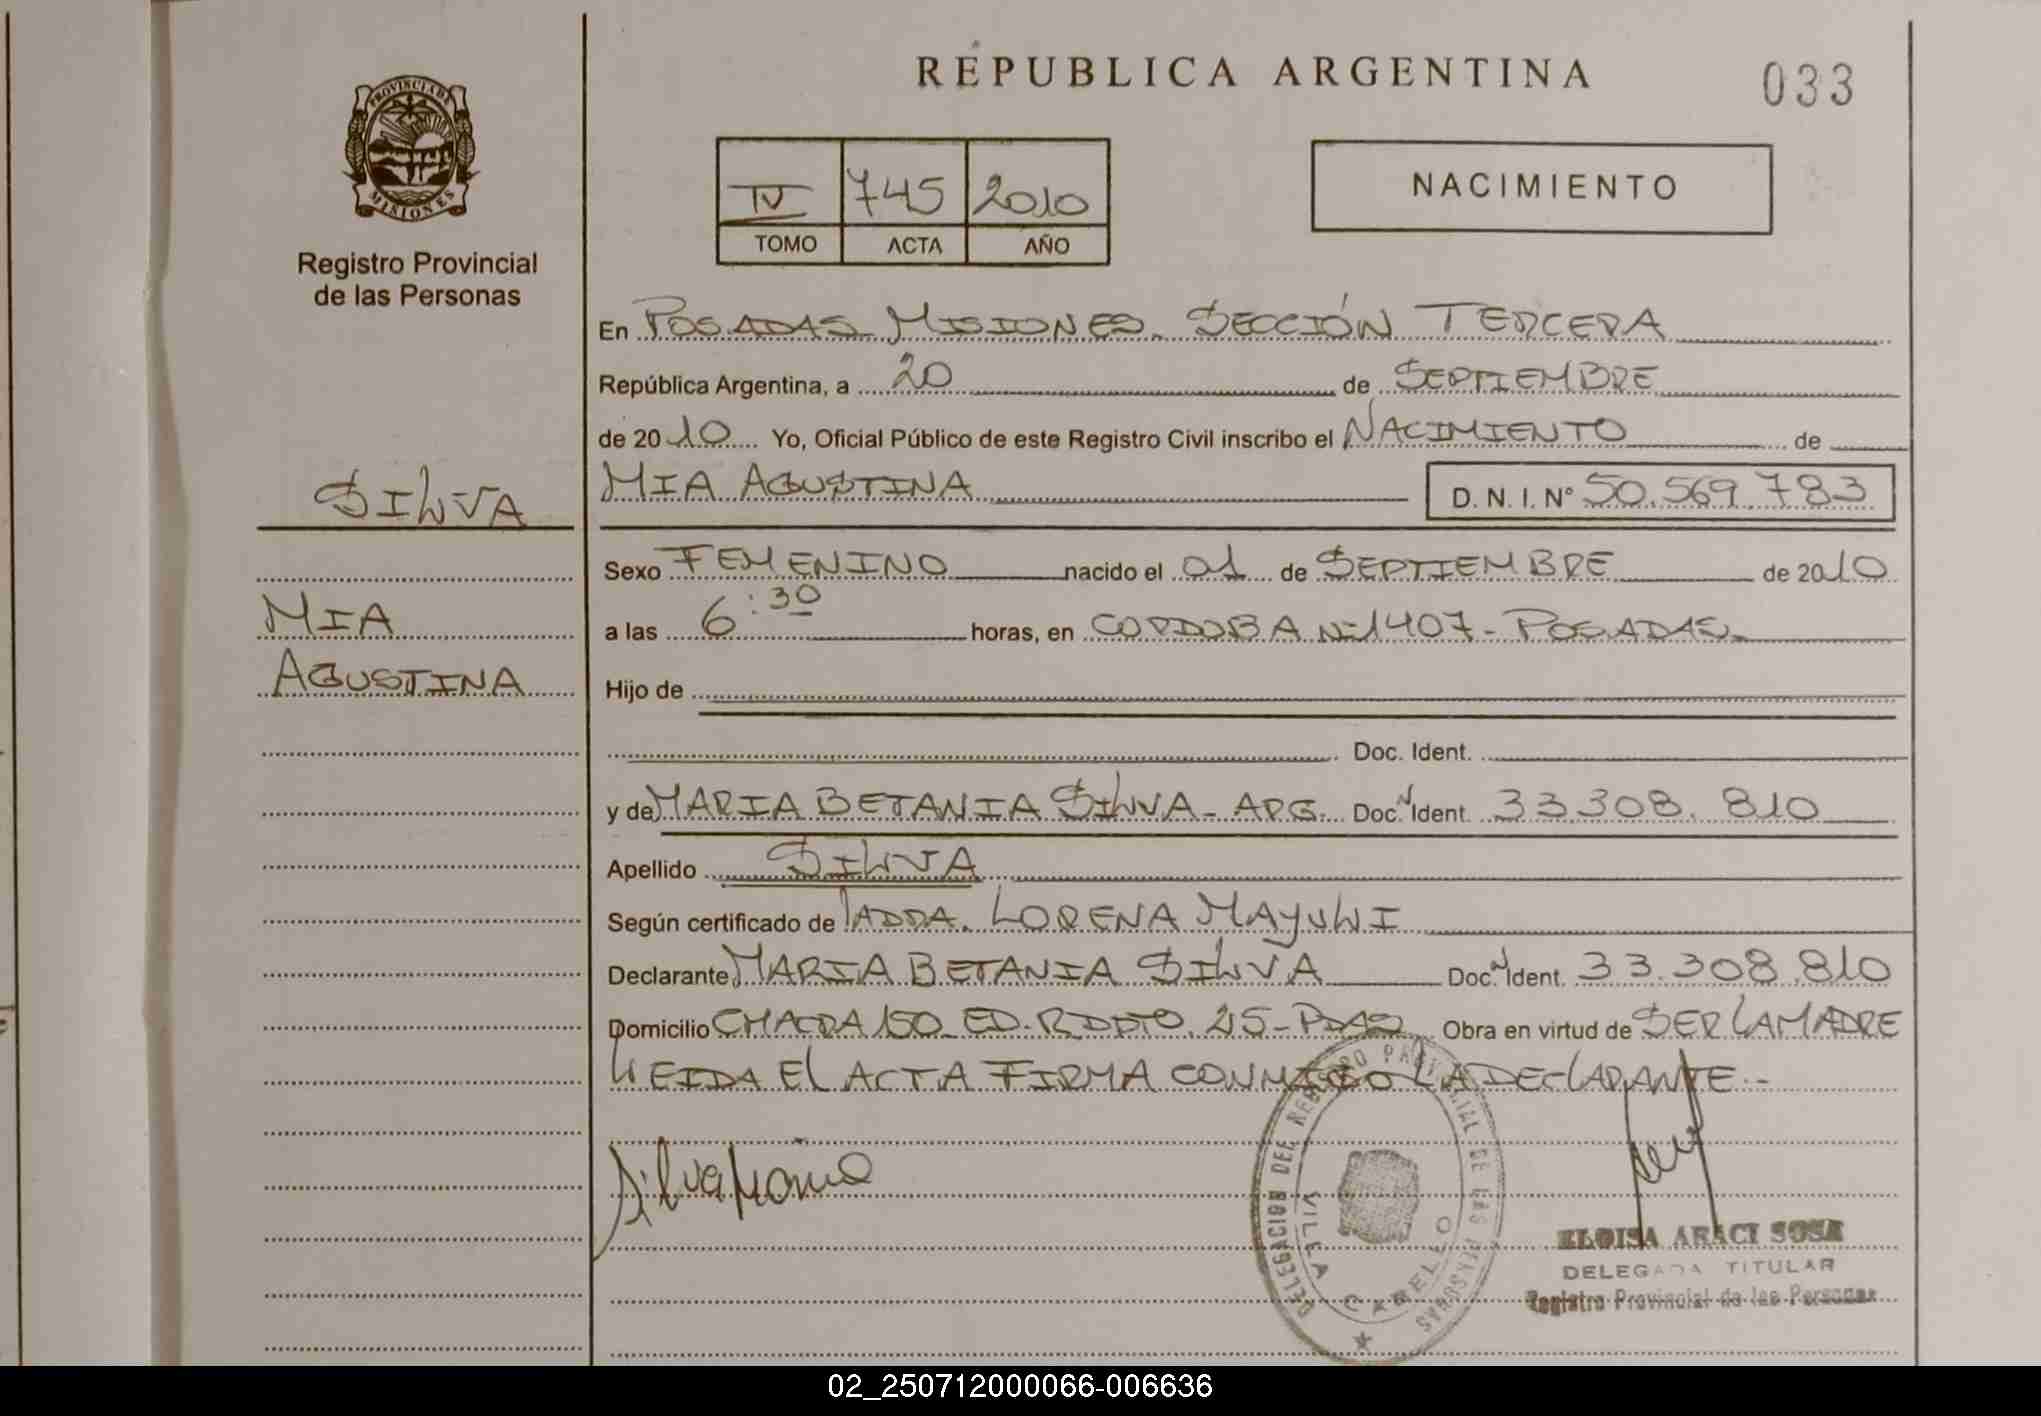 REPUBLICA ARGENTINA
033
PROVINCIA DE
MISIONES
Registro Provincial
de las Personas
IV 745 2010
TOMO ACTA AÑO
NACIMIENTO
En POSADAS MISIONES. SECCIÓN TERCERA
República Argentina, a 20 de SEPTIEMBRE
de 2010 Yo, Oficial Público de este Registro Civil inscribo el NACIMIENTO de
SILVA
MIA AGUSTINA D. N. I. N° 50.569.783
Sexo FEMENINO nacido el 01 de SEPTIEMBRE de 2010
MIA
a las 6:30 horas, en CORDOBA N=1407- POSADAS
AGUSTINA
Hijo de
Doc. Ident.
y de MARIA BETANIA SILVA - ARG. Doc. Ident. 33308.810
Apellido SILVA
Según certificado de LORENA MAYULI
Declarante MARIA BETANIA SILVA Doc. Ident. 33.308.810
Domicilio CHACRA 150 ED. DPTO. 25- PDAS Obra en virtud de SER LA MADRE
LEIDA EL ACTA FIRMA CONMIGO LA DECLARANTE.-
Silva Maria
DELEGACION DEL REGISTRO PROVINCIAL DE LAS PERSONAS
VILLA CABELLO
ELOISA ARACI SOSA
DELEGADA TITULAR
Registro Provincial de las Personas
02_250712000066-006636